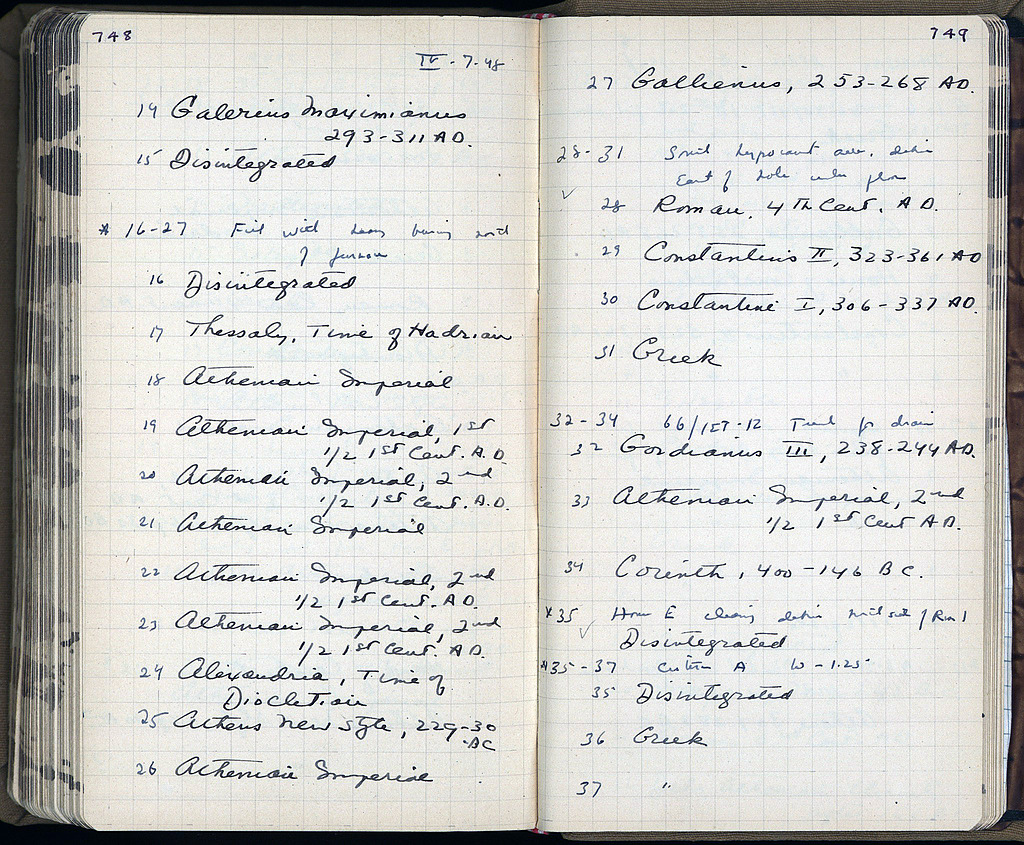 748
IV - 7-48
14 Galerius Maximianus
293-311 A.D.
15 Disintegrated
* 16-27 Fill with heavy burning north
of furnace
16 Disintegrated
17 Thessaly, Time of Hadrian
18 Athenian Imperial
19 Athenian Imperial, 1st
1/2 1st Cent. A.D.
20 Athenian Imperial, 2nd
1/2 1st Cent. A.D.
21 Athenian Imperial
22 Athenian Imperial, 2nd
1/2 1st Cent. A.D.
23 Athenian Imperial, 2nd
1/2 1st Cent. A.D.
24 Alexandria, Time of
Diocletian
25 Athens New Style, 229-30
BC
26 Athenian Imperial
749
27 Gallienus, 253-268 AD.
28-31 hypocaust
East of
28 Roman, 4Th Cent. A.D.
29 Constantius II, 323-361 AD
30 Constantine I, 306-337 AD.
31 Greek
32-34 66/ΙΣΤ-12 drain
32 Gordianus III, 238-244 AD.
33 Athenian Imperial, 2nd
1/2 1st Cent A.D.
34 Corinth, 400-146 B.C.
*35 House E
Disintegrated
*35-37 Cistern A W - 1.25
35 Disintegrated
36 Greek
37 "